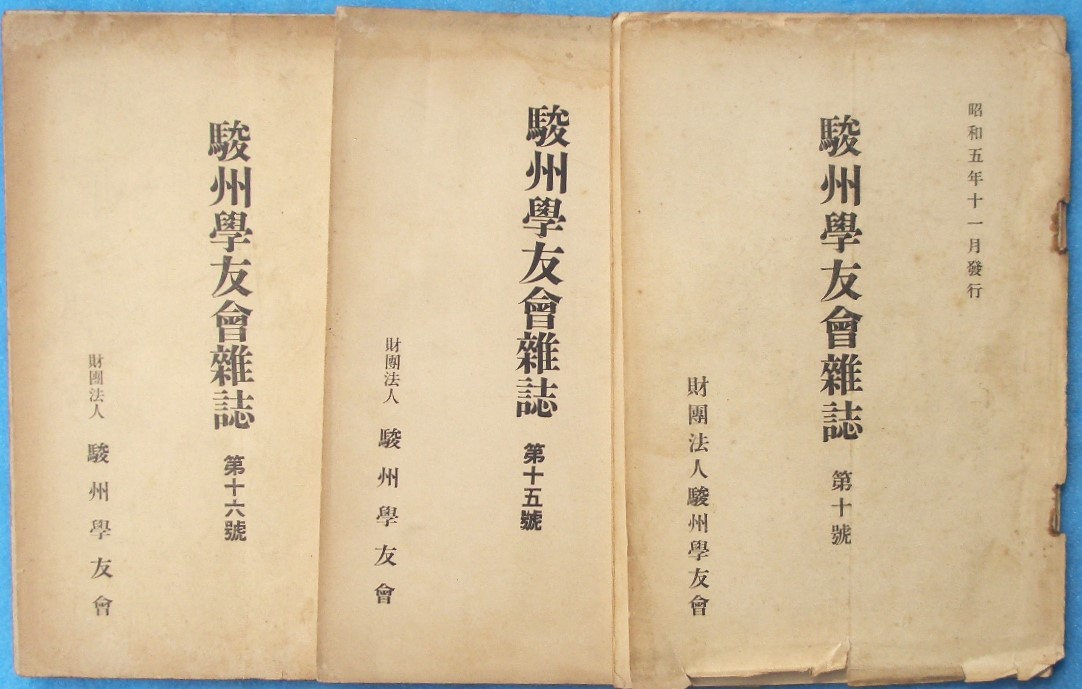 昭和五年十一月發行
駿州學友會雜誌 第十號
財團法人駿州學友會
駿州學友會雜誌 第十五號
財團法人 駿州學友會
駿州學友會雜誌 第十六號
財團法人 駿州學友會